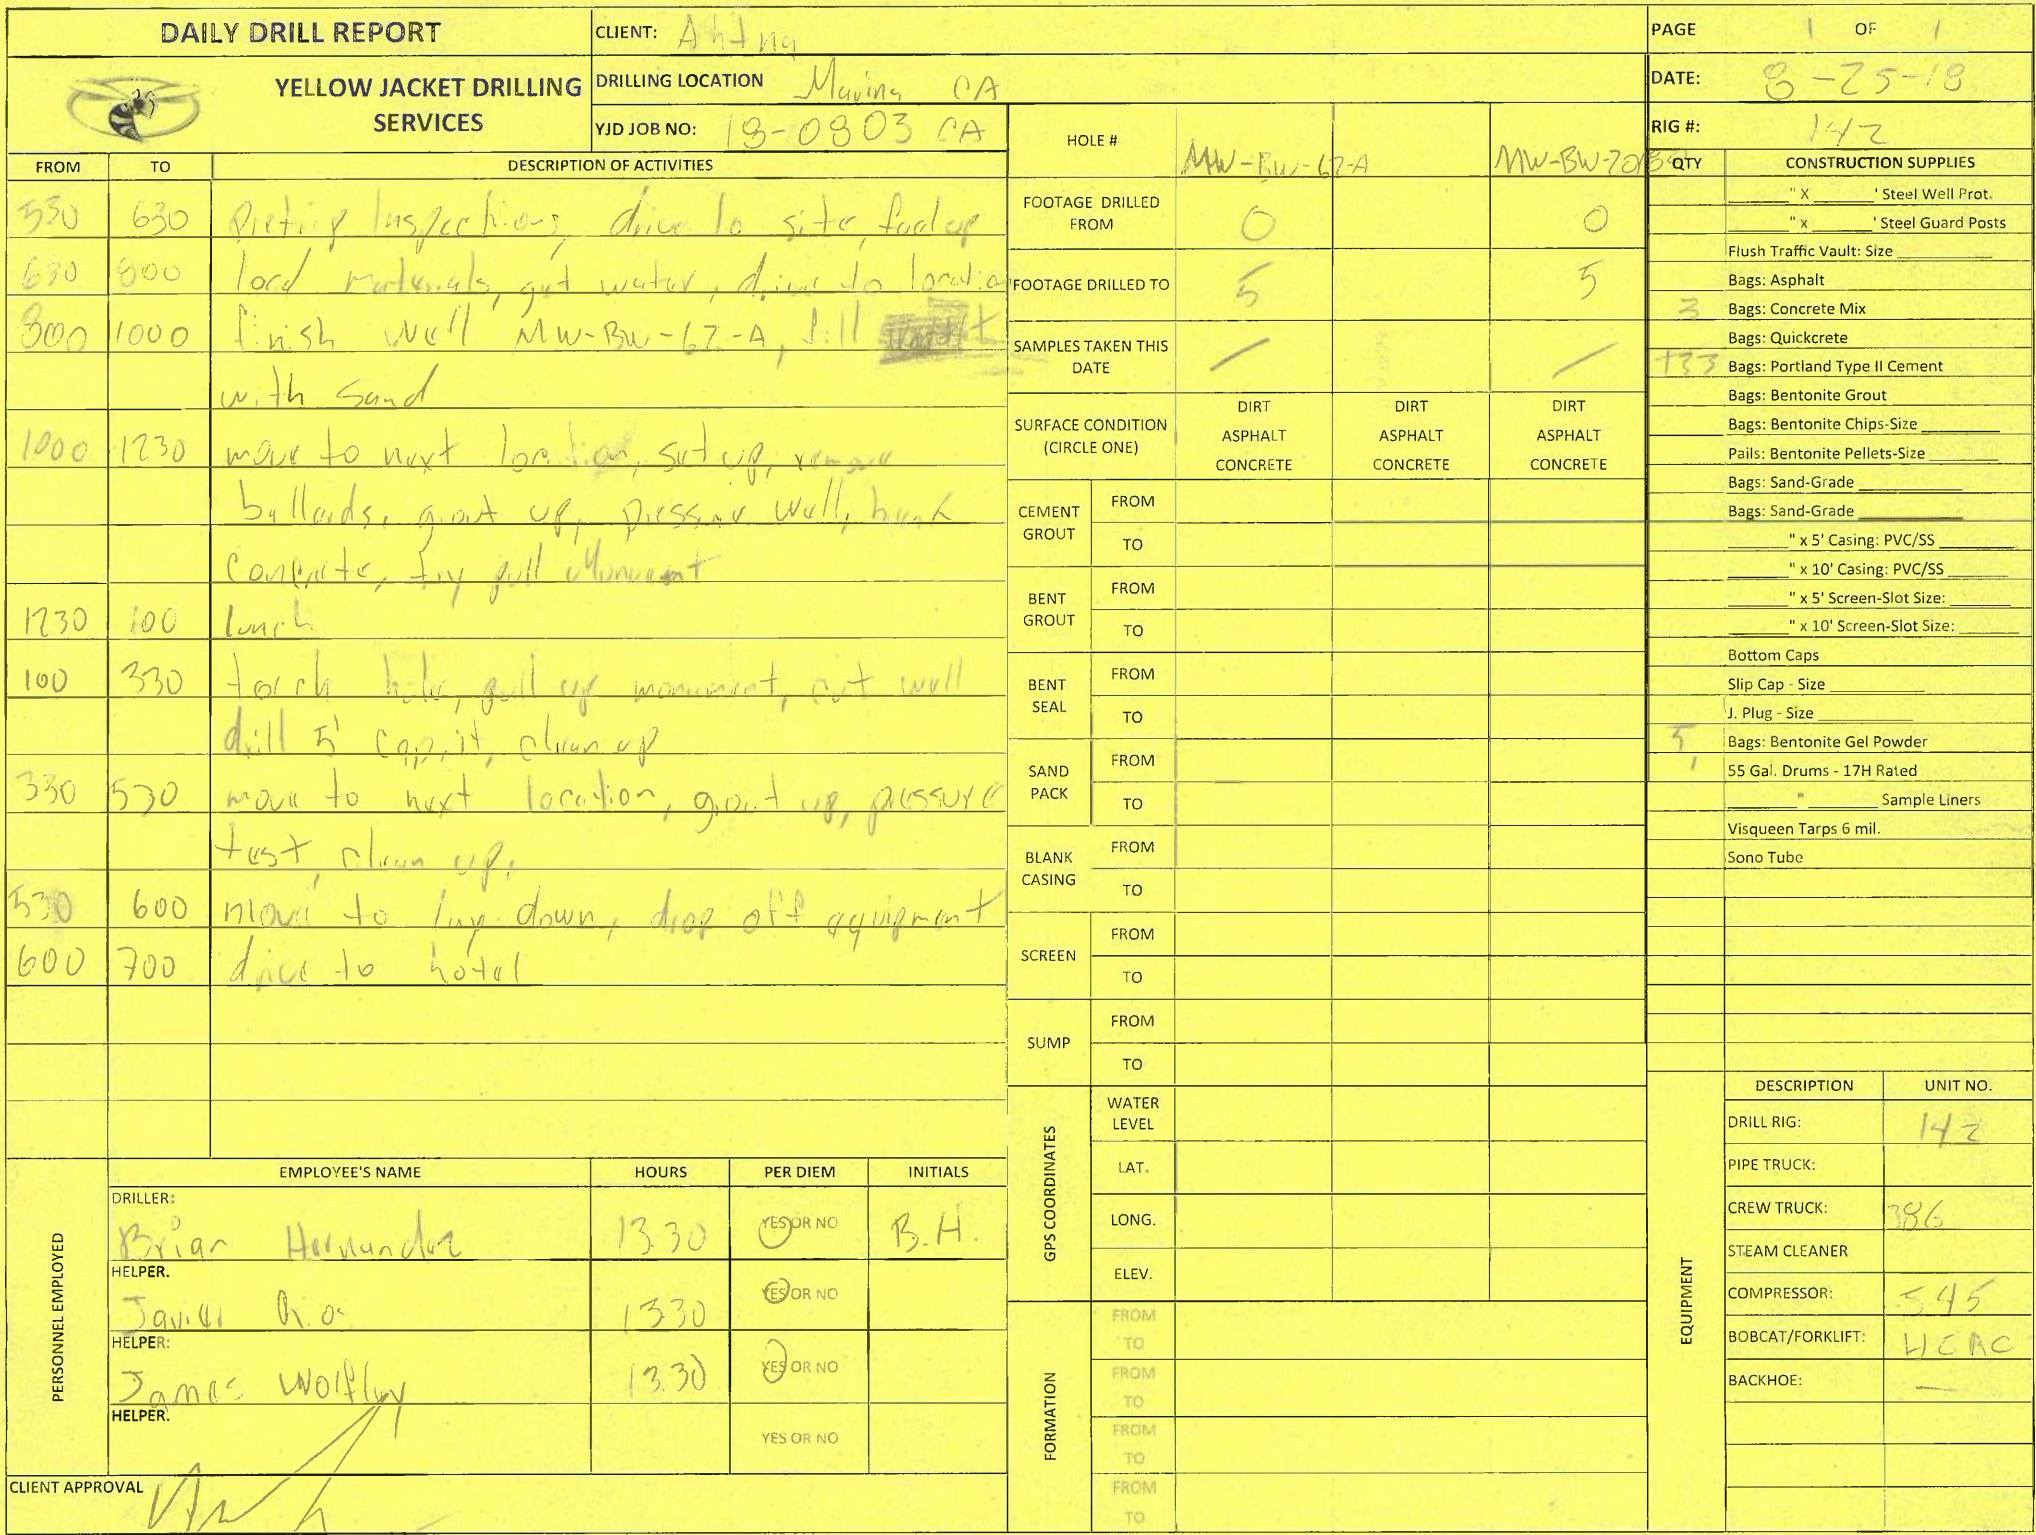 DAILY DRILL REPORT
CLIENT: Ahtna
PAGE 1 OF 1
YELLOW JACKET DRILLING SERVICES
DRILLING LOCATION Marina CA
DATE: 8-25-18
YJD JOB NO: 18-0803 CA
RIG #: 142
FROM TO DESCRIPTION OF ACTIVITIES
530 630 Inspections, drive to site, fuel up
630 800 load materials, get water, drive to location
800 1000 finish well MW-BW-62-A, fill
with sand
1000 1230 move to next location, set up, remove
ballards, grout up, pressure well, break
concrete, try pull Monument
1230 100 lunch
100 330 torch hole, pull up monument, cut well
drill 5' cap it, clean up
330 530 move to next location, grout up, pressure
test, clean up.
530 600 move to lay down, drop off equipment
600 700 drive to hotel
HOLE # MW-BW-62-A
FOOTAGE DRILLED FROM 0 0
FOOTAGE DRILLED TO 5 5
SAMPLES TAKEN THIS DATE / /
SURFACE CONDITION (CIRCLE ONE)
DIRT DIRT DIRT
ASPHALT ASPHALT ASPHALT
CONCRETE CONCRETE CONCRETE
CEMENT GROUT FROM
TO
BENT GROUT FROM
TO
BENT SEAL FROM
TO
SAND PACK FROM
TO
BLANK CASING FROM
TO
SCREEN FROM
TO
SUMP FROM
TO
GPS COORDINATES
WATER LEVEL
LAT.
LONG.
ELEV.
FORMATION
FROM
TO
FROM
TO
FROM
TO
FROM
TO
QTY CONSTRUCTION SUPPLIES
______" X ______' Steel Well Prot.
______" x ______' Steel Guard Posts
Flush Traffic Vault: Size
Bags: Asphalt
3 Bags: Concrete Mix
Bags: Quickcrete
Bags: Portland Type II Cement
Bags: Bentonite Grout
Bags: Bentonite Chips-Size
Pails: Bentonite Pellets-Size
Bags: Sand-Grade
Bags: Sand-Grade
" x 5' Casing: PVC/SS
" x 10' Casing: PVC/SS
" x 5' Screen-Slot Size:
" x 10' Screen-Slot Size:
Bottom Caps
Slip Cap - Size
J. Plug - Size
5 Bags: Bentonite Gel Powder
55 Gal. Drums - 17H Rated
" Sample Liners
Visqueen Tarps 6 mil.
Sono Tube
EQUIPMENT
DESCRIPTION UNIT NO.
DRILL RIG: 142
PIPE TRUCK:
CREW TRUCK: 386
STEAM CLEANER
COMPRESSOR: 545
BOBCAT/FORKLIFT:
BACKHOE: —
PERSONNEL EMPLOYED
EMPLOYEE'S NAME HOURS PER DIEM INITIALS
DRILLER:
Brian Hernandez 13.30 YES OR NO B.H.
HELPER.
Javier 13.30 YES OR NO
HELPER:
James Wolfley 13.30 YES OR NO
HELPER.
YES OR NO
CLIENT APPROVAL